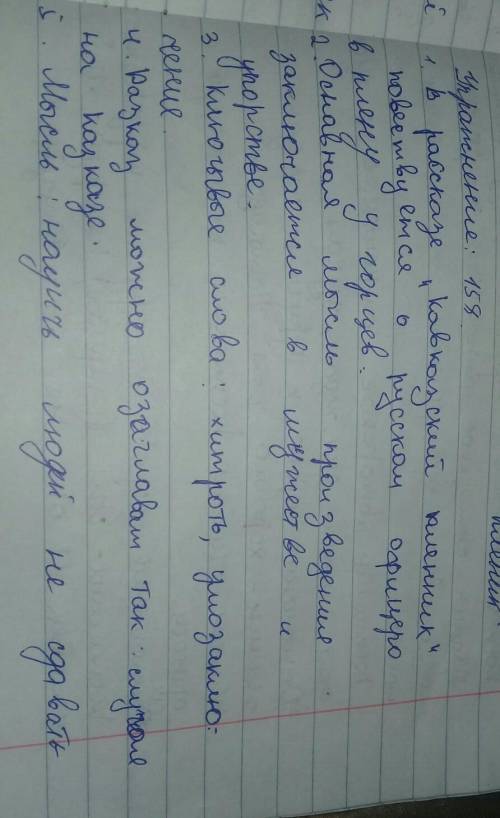 пленник"
Упражнение: 158
1. В рассказе "Кавказский пленник"
повествуется о русском офицеро
в плену у горцев.
2. Основная мысль произведения
заключается в мужестве и
упорстве.
3. Ключывые слова: хитроть, умозаклю-
чение.
4. Разказ можно озаглавам так: случая
на Кавказе.
5. Мысль: научть людей не сдавать